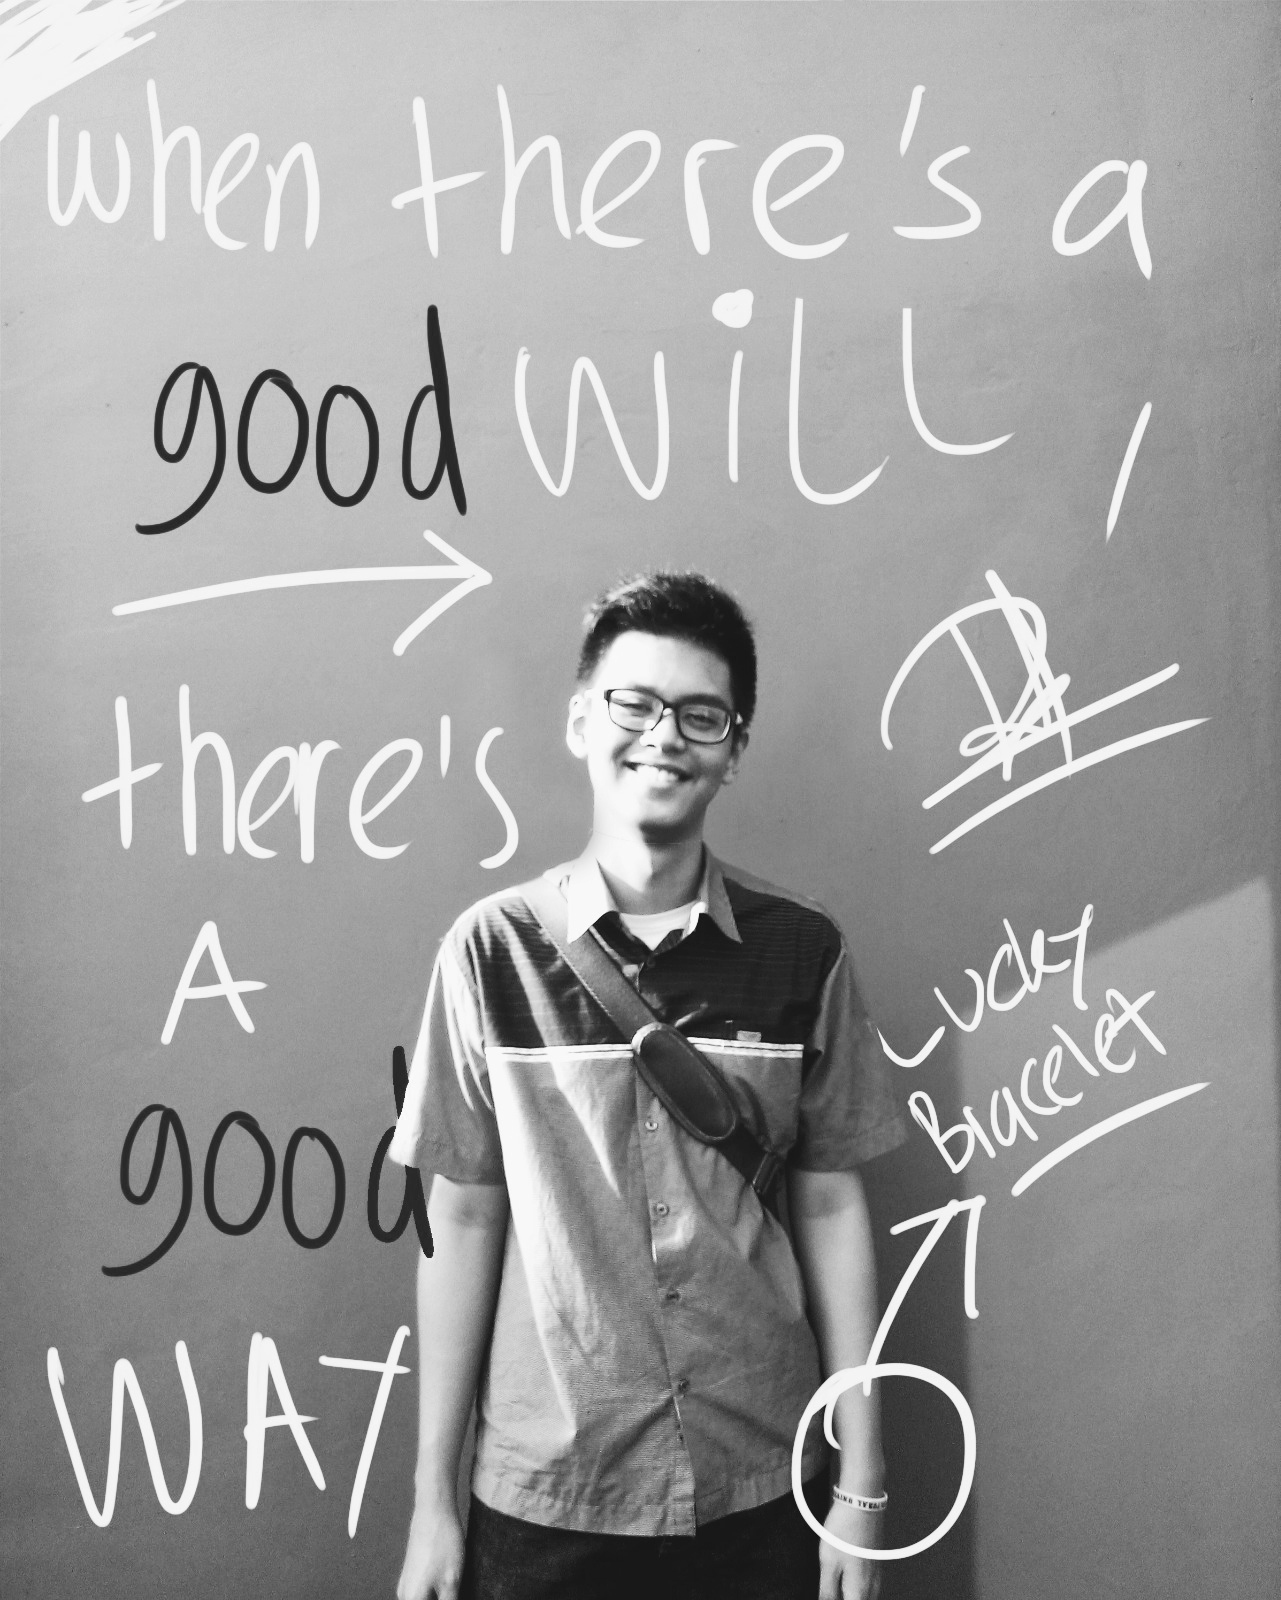 when there's a
good will,
there's
A
good
WAY
Lucky
Bracelet